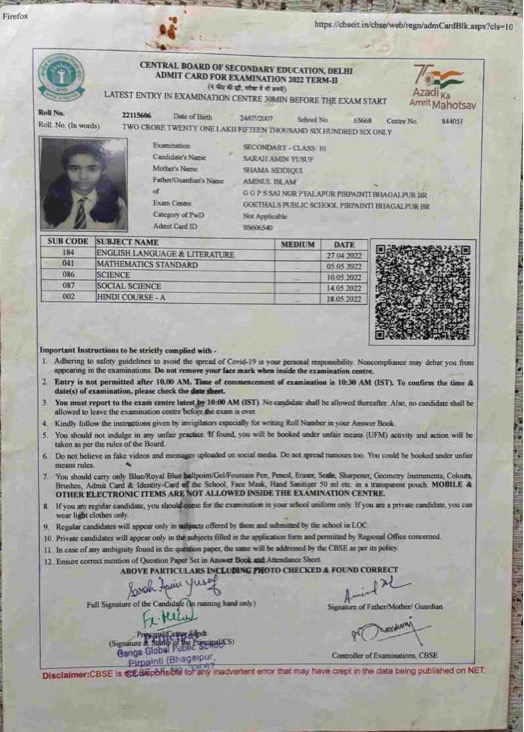 Firefox
https://cbseit.in/cbse/web/regn/admCardBlk.aspx?cls=10
CENTRAL BOARD OF SECONDARY EDUCATION, DELHI
ADMIT CARD FOR EXAMINATION 2022 TERM-II
LATEST ENTRY IN EXAMINATION CENTRE 30MIN BEFORE THE EXAM START
Azadi Ka
Amrit Mahotsav
Roll No. 22115606 Date of Birth 24/07/2007 School No. 65668 Centre No. 844051
Roll. No. (In words) TWO CRORE TWENTY ONE LAKH FIFTEEN THOUSAND SIX HUNDRED SIX ONLY
Examination SECONDARY - CLASS: 10
Candidate's Name SARAH AMIN YUSUF
Mother's Name SHAMA SIDDIQUI
Father/Guardian's Name AMINUL ISLAM
of G G P S SAI NGR PYALAPUR PIRPAINTI BHAGALPUR BR
Exam Centre GOETHALS PUBLIC SCHOOL PIRPAINTI BHAGALPUR BR
Category of PwD Not Applicable
Admit Card ID SS606540
SUB CODE SUBJECT NAME MEDIUM DATE
184 ENGLISH LANGUAGE & LITERATURE ... 27.04.2022
041 MATHEMATICS STANDARD ... 05.05.2022
086 SCIENCE ... 10.05.2022
087 SOCIAL SCIENCE ... 14.05.2022
002 HINDI COURSE - A ... 18.05.2022
Important Instructions to be strictly complied with -
1. Adhering to safety guidelines to avoid the spread of Covid-19 is your personal responsibility. Noncompliance may debar you from
appearing in the examinations. Do not remove your face mark when inside the examination centre.
2. Entry is not permitted after 10.00 AM. Time of commencement of examination is 10:30 AM (IST). To confirm the time &
date(s) of examination, please check the date sheet.
3. You must report to the exam centre latest by 10:00 AM (IST). No candidate shall be allowed thereafter. Also, no candidate shall be
allowed to leave the examination centre before the exam is over.
4. Kindly follow the instructions given by invigilators especially for writing Roll Number in your Answer Book.
5. You should not indulge in any unfair practice. If found, you will be booked under unfair means (UFM) activity and action will be
taken as per the rules of the Board.
6. Do not believe in fake videos and messages uploaded on social media. Do not spread rumours too. You could be booked under unfair
means rules.
7. You should carry only Blue/Royal Blue ballpoint/Gel/Fountain Pen, Pencil, Eraser, Scale, Sharpener, Geometry Instruments, Colours,
Brushes, Admit Card & Identity-Card of the School, Face Mask, Hand Sanitizer 50 ml etc. in a transparent pouch. MOBILE &
OTHER ELECTRONIC ITEMS ARE NOT ALLOWED INSIDE THE EXAMINATION CENTRE.
8. If you are regular candidate, you should come for the examination in your school uniform only. If you are a private candidate, you can
wear light clothes only.
9. Regular candidates will appear only in subjects offered by them and submitted by the school in LOC.
10. Private candidates will appear only in the subjects filled in the application form and permitted by Regional Office concerned.
11. In case of any ambiguity found in the question paper, the same will be addressed by the CBSE as per its policy.
12. Ensure correct mention of Question Paper Set in Answer Book and Attendance Sheet.
ABOVE PARTICULARS INCLUDING PHOTO CHECKED & FOUND CORRECT
Sarah Amin Yusuf
Full Signature of the Candidate (in running hand only) Signature of Father/Mother/ Guardian
(Signature & Stamp of the Principal/CS) Controller of Examinations, CBSE
Ganga Global Public School
Pirpainti (Bhagalpur,
Disclaimer:CBSE is not responsible for any inadvertent error that may have crept in the data being published on NET.